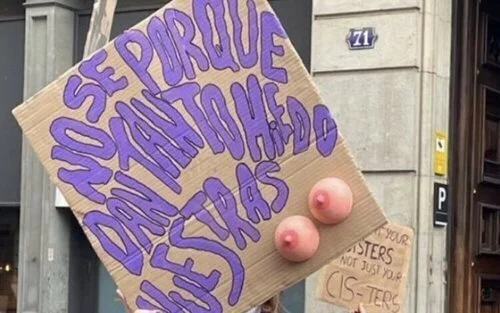 NO SE PORQUE
DAN TANTO MIEDO
NUESTRAS
71
P
YOUR
SISTERS
NOT JUST YOUR
CIS-TERS